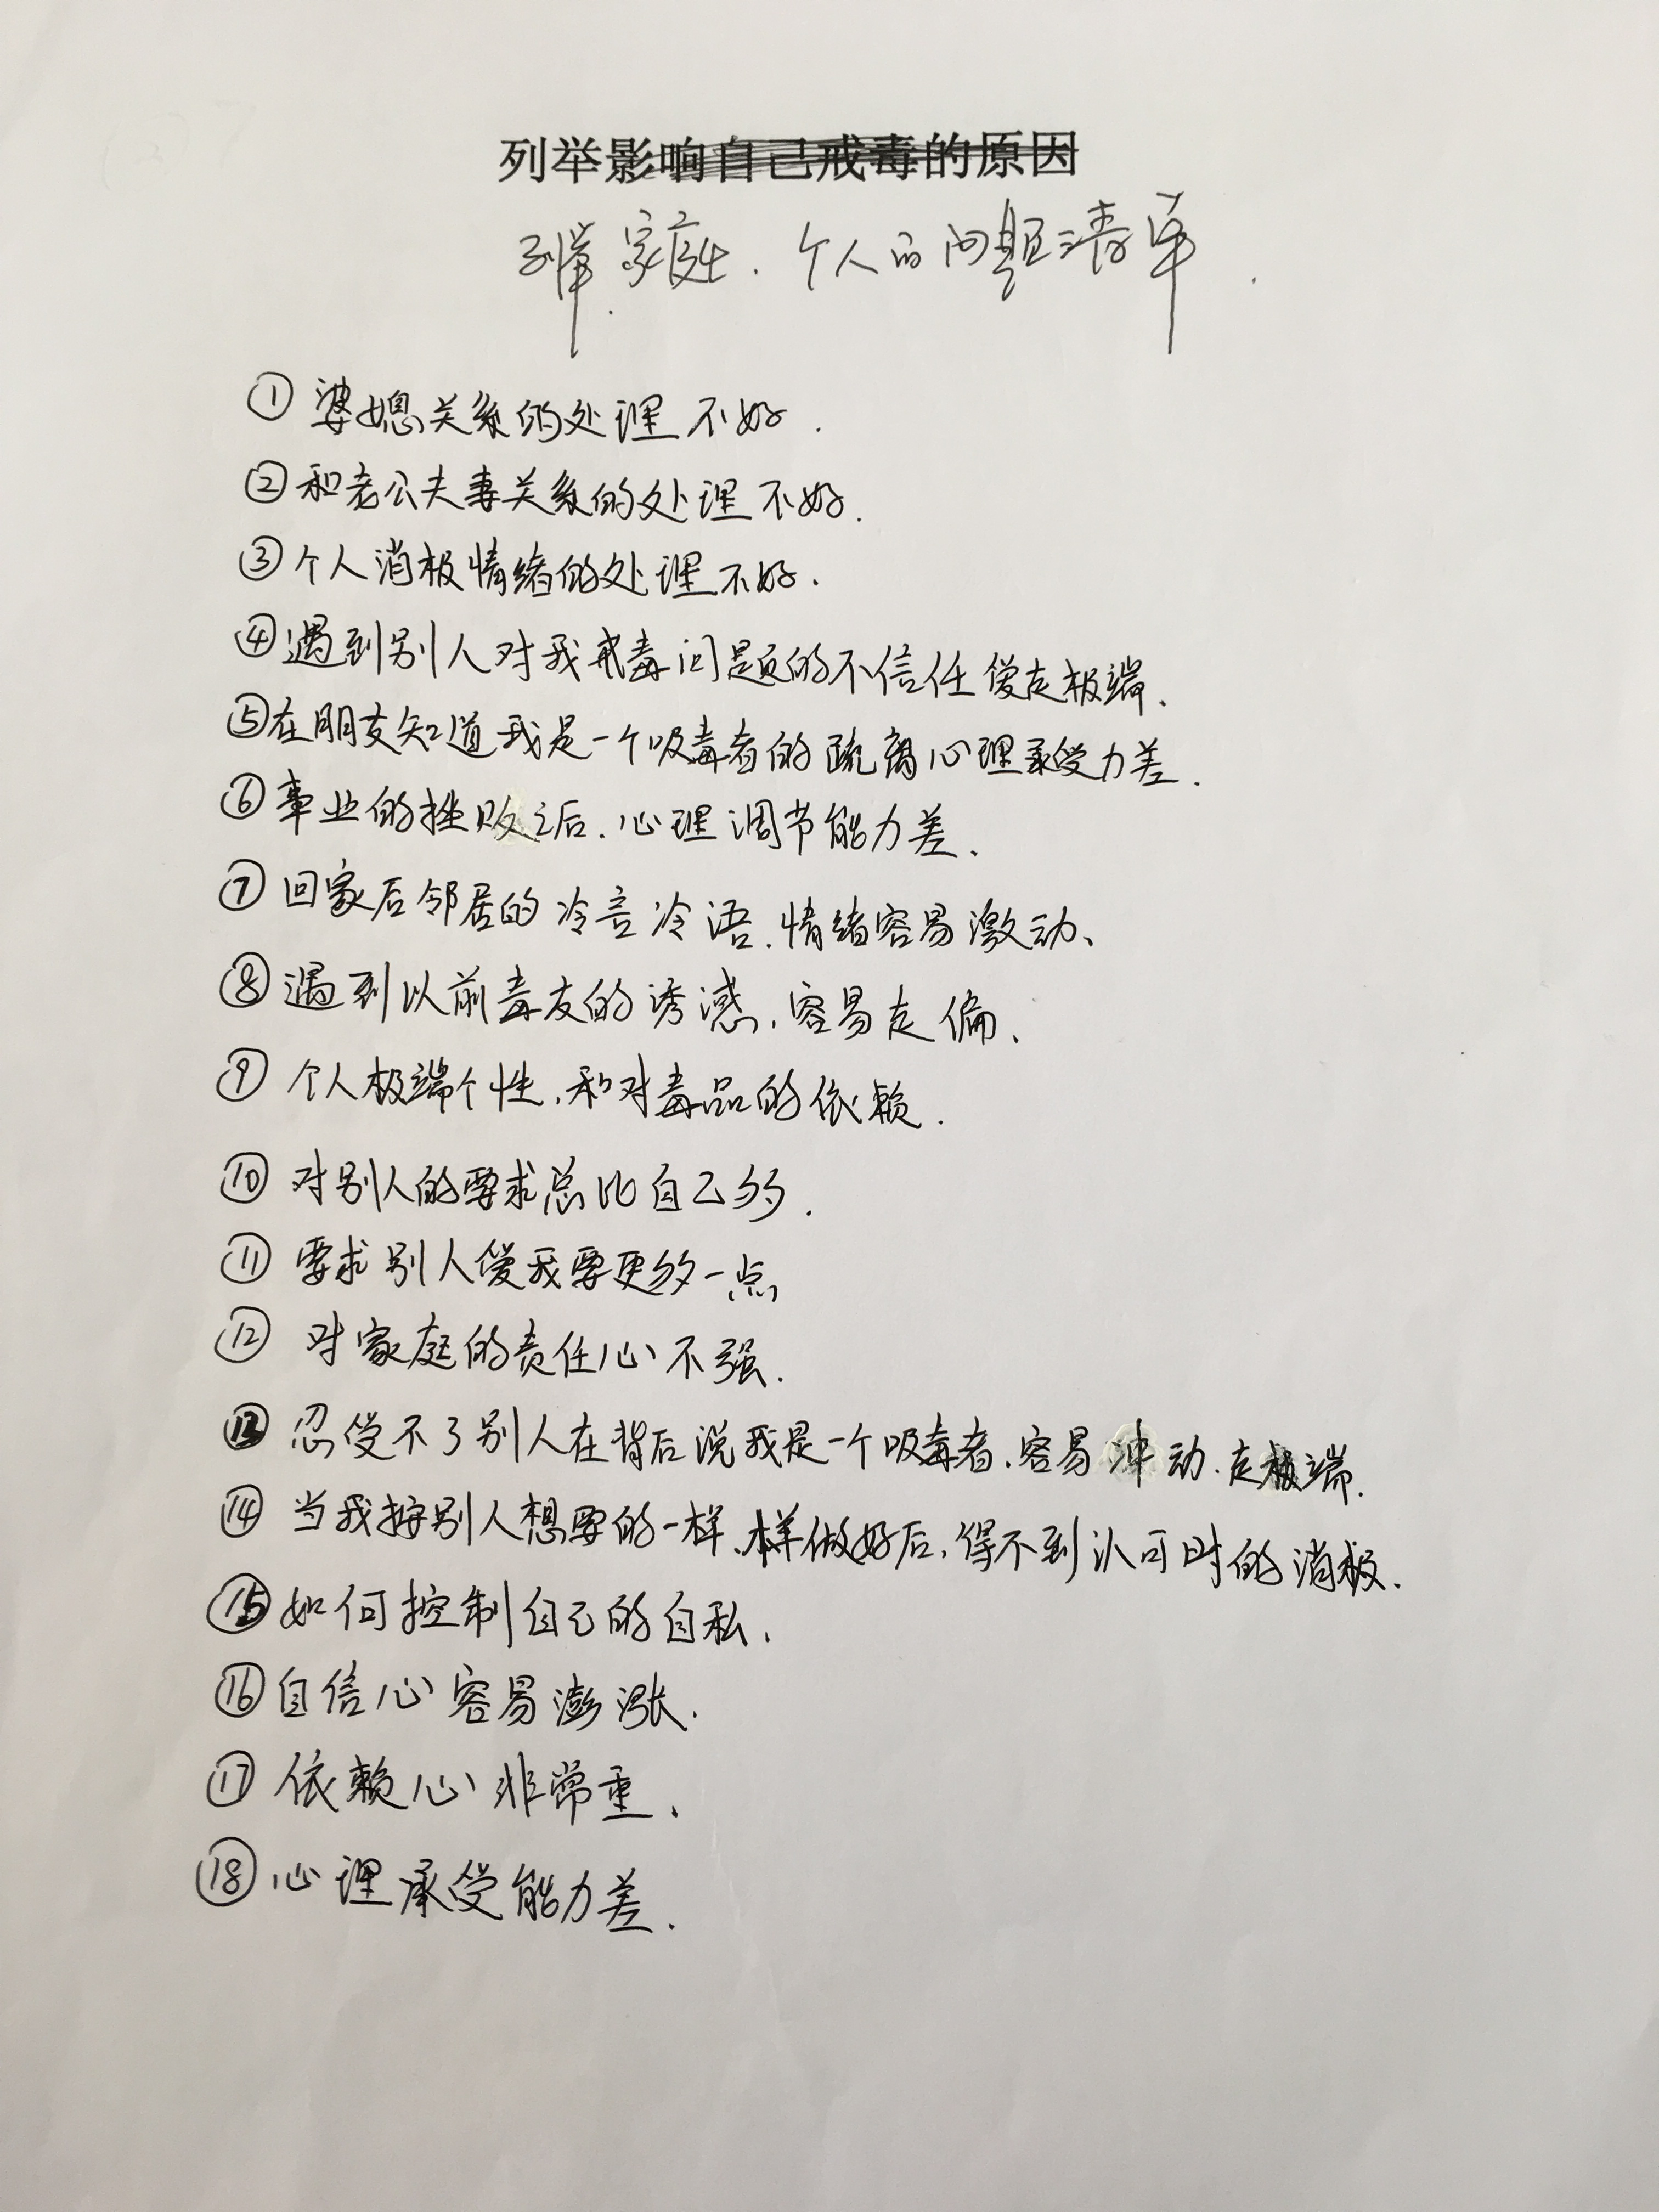 列举影响自己戒毒的原因
列举家庭、个人的问题清单.
① 婆媳关系的处理不好.
② 和老公夫妻关系的处理不好.
③ 个人消极情绪的处理不好.
④ 遇到别人对我戒毒问题的不信任爱走极端.
⑤ 在朋友知道我是一个吸毒者的疏离心理承受力差.
⑥ 事业的挫败之后.心理调节能力差.
⑦ 回家后邻居的冷言冷语.情绪容易激动、
⑧ 遇到以前毒友的诱惑.容易走偏、
⑨ 个人极端个性.和对毒品的依赖.
⑩ 对别人的要求总比自己多.
⑪ 要求别人爱我要更多一点
⑫ 对家庭的责任心不强.
⑬ 忍受不了别人在背后说我是一个吸毒者.容易冲动.走极端.
⑭ 当我按别人想要的一样.样做好后.得不到认可时的消极.
⑮ 如何控制自己的自私.
⑯ 自信心容易澎涨.
⑰ 依赖心非常重、
⑱ 心理承受能力差.